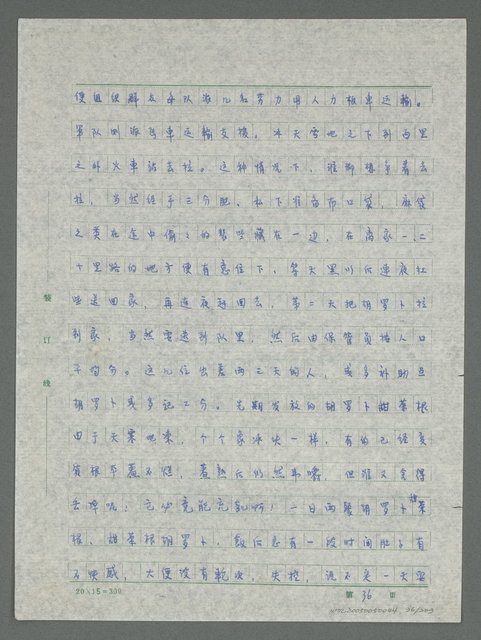 便组织群众每队派几名劳力用人力板车运输。
军队则派马车运输支援。冰天雪地之下到百里
之外火车站去拉。这种情况下，谁都想争着去
拉，当然经手三分肥，私下准备布口袋，麻袋
之类在途中偷偷的藏在一边，在离家一、二
十里路的地方便有意住下，等天黑以后连夜扛
些送回家，再连夜返回去，第二天把胡罗卜拉
到家，当然需送到队里，然后由保管员按人口
平均分。这几位出差两三天的人，或多补助点
胡罗卜或多记工分。先期发放的胡罗卜甜菜根
由于天寒地冻，个个象冰块一样，有的已经变
质根本煮不烂，煮熟后仍然难嚼，但谁又舍得
丢掉呢！它必竟能充饥啊！一日两餐胡罗卜甜菜
根、甜菜根胡罗卜，饭后总有一段时间肚子有
不爽感，大便没有乾次，失控，说不定一天需
20×15=300
第 36 页
装
订
线